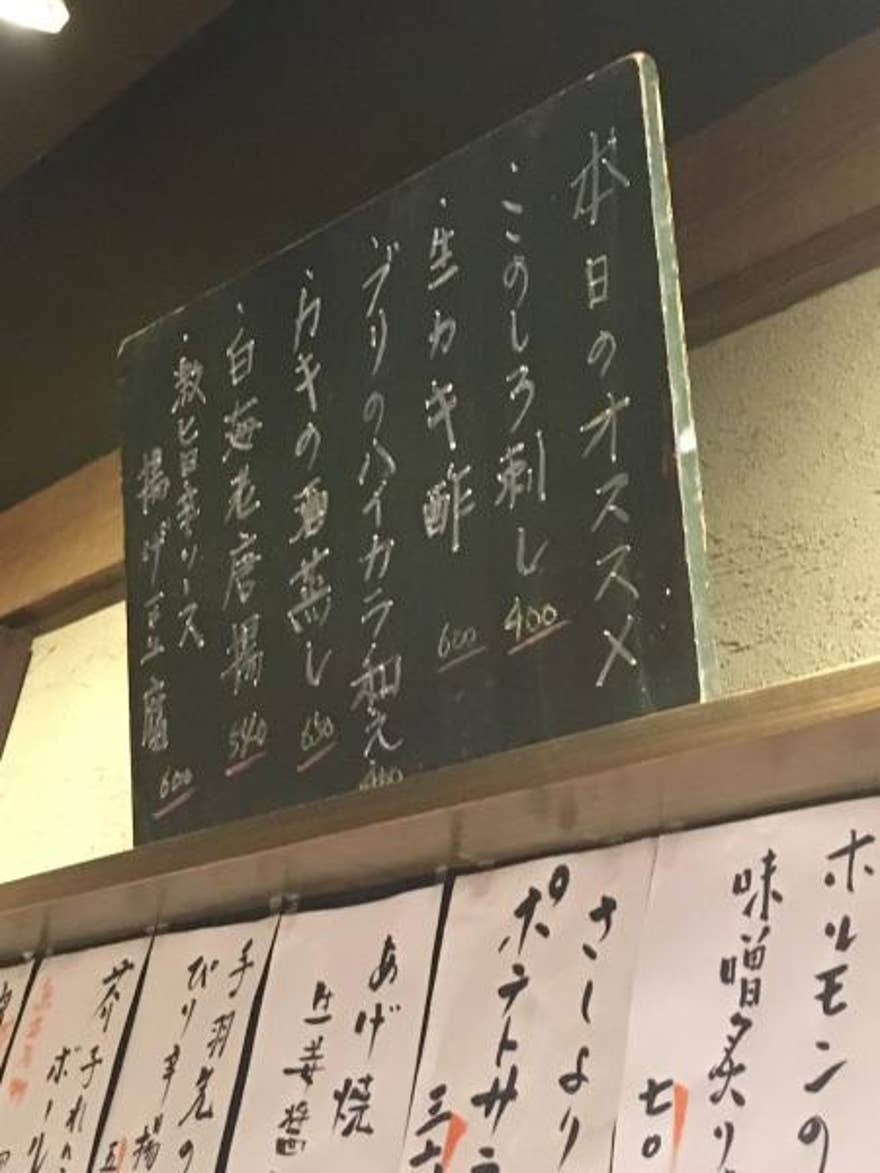 本日のオススメ
・このしろ刺し 400
・生カキ酢 600
・ブリのハイカラ和え
・カキの酒蒸し 650
・白海老唐揚 540
揚げ豆腐 600
ホルモンの
味噌炙り
七〇
さしより
ポテトサラ
三
あげ焼
生姜醬
手羽先の
ぴり辛揚
五
芥子れん
ボール